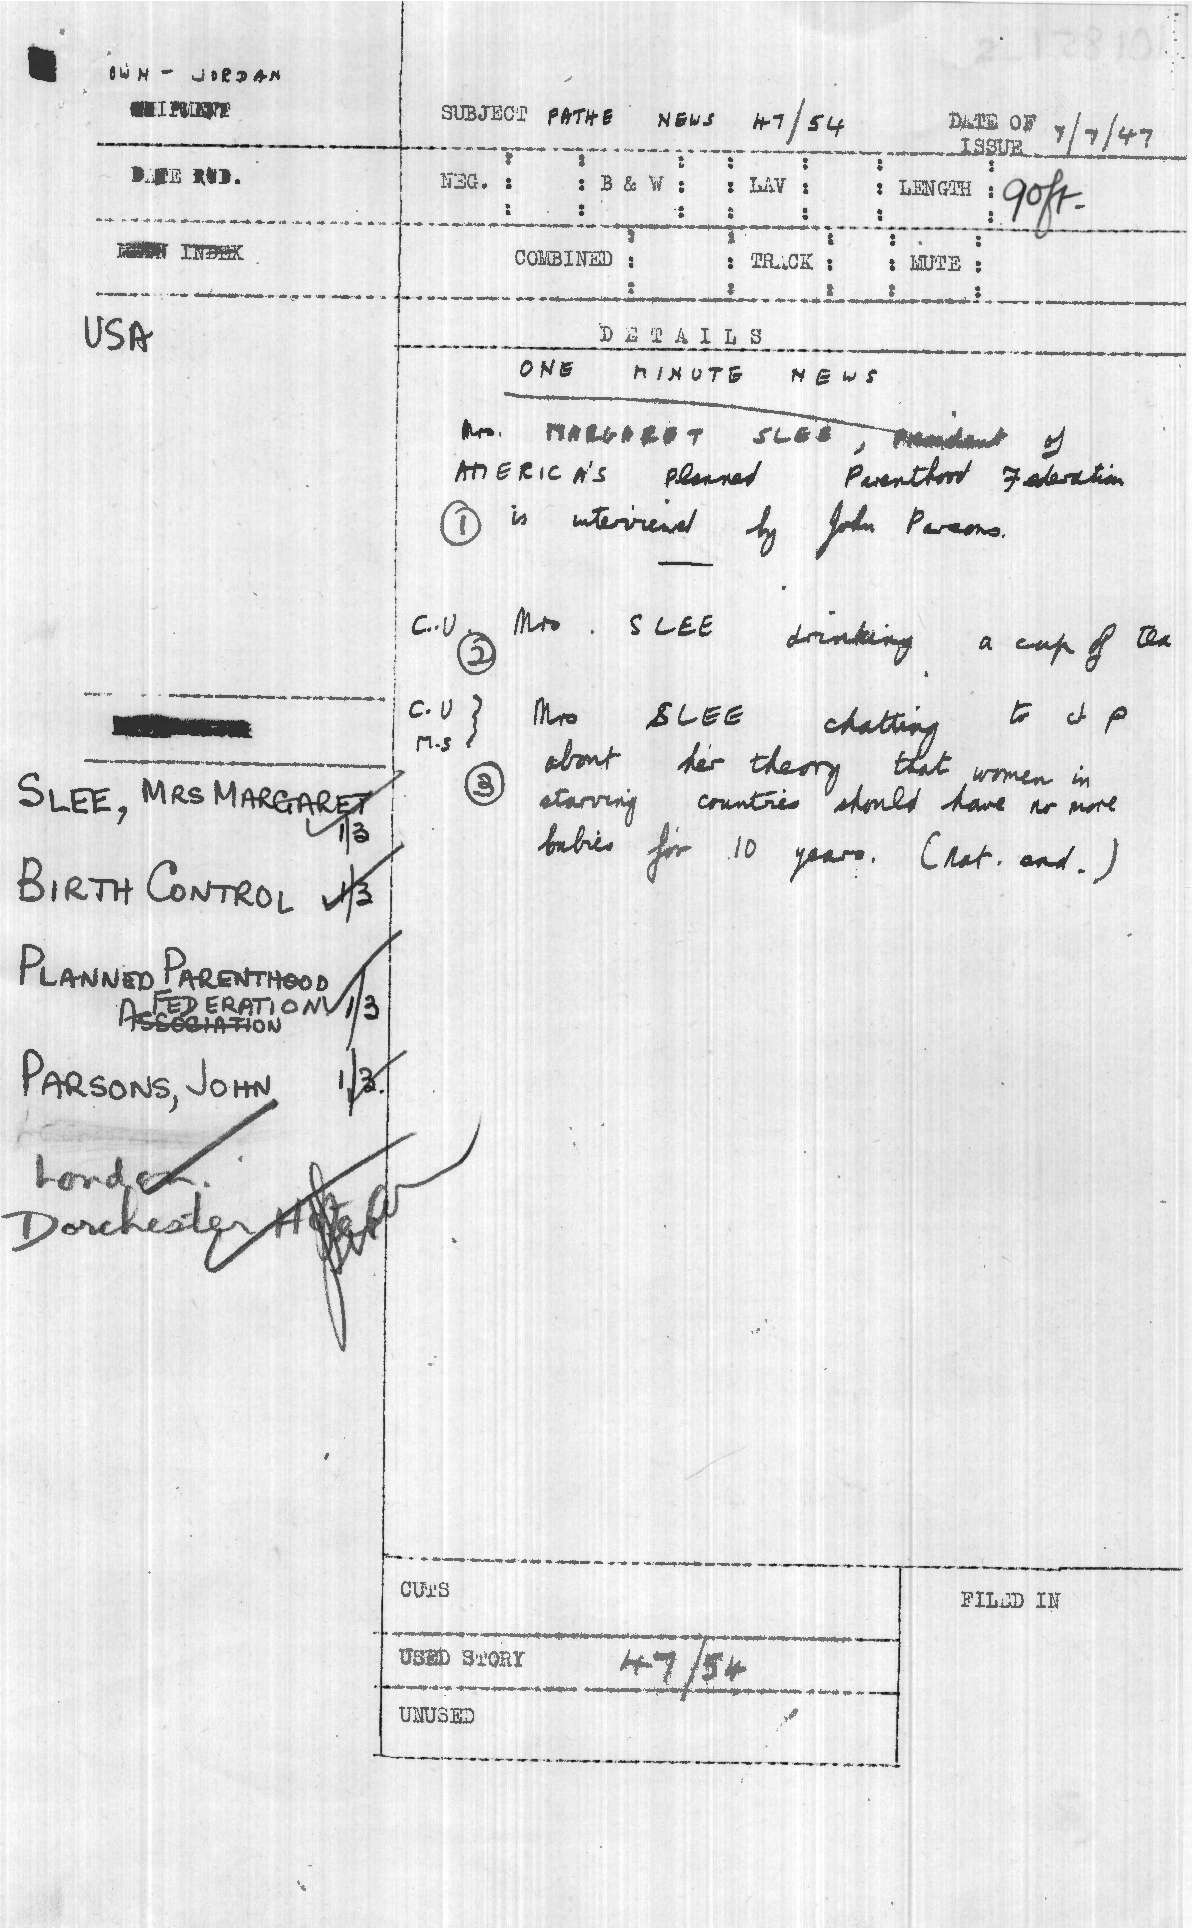 OWN - JORDAN
SUBJECT PATHE NEWS 47/54 DATE OF
ISSUE 7/7/47
DATE RVD.
NEG. : : B & W : : LAV : : LENGTH : 90ft.
INDEX
COMBINED : : TRACK : : MUTE :
USA
DETAILS
ONE MINUTE NEWS
Mrs. MARGARET SLEE, President of
AMERICA'S Planned Parenthood Federation
① is interviewed by John Parsons.
C.U. Mrs. SLEE drinking a cup of tea
②
C.U } Mrs SLEE chatting to J P
M.S
about her theory that women in
③ starving countries should have no more
babies for 10 years. (Nat. snd.)
SLEE, MRS MARGARET
1/3
BIRTH CONTROL 1/3
PLANNED PARENTHOOD
FEDERATION 1/3
ASSOCIATION
PARSONS, JOHN 1/3.
London.
Dorchester Hotel
CUTS
FILED IN
USED STORY 47/54
UNUSED